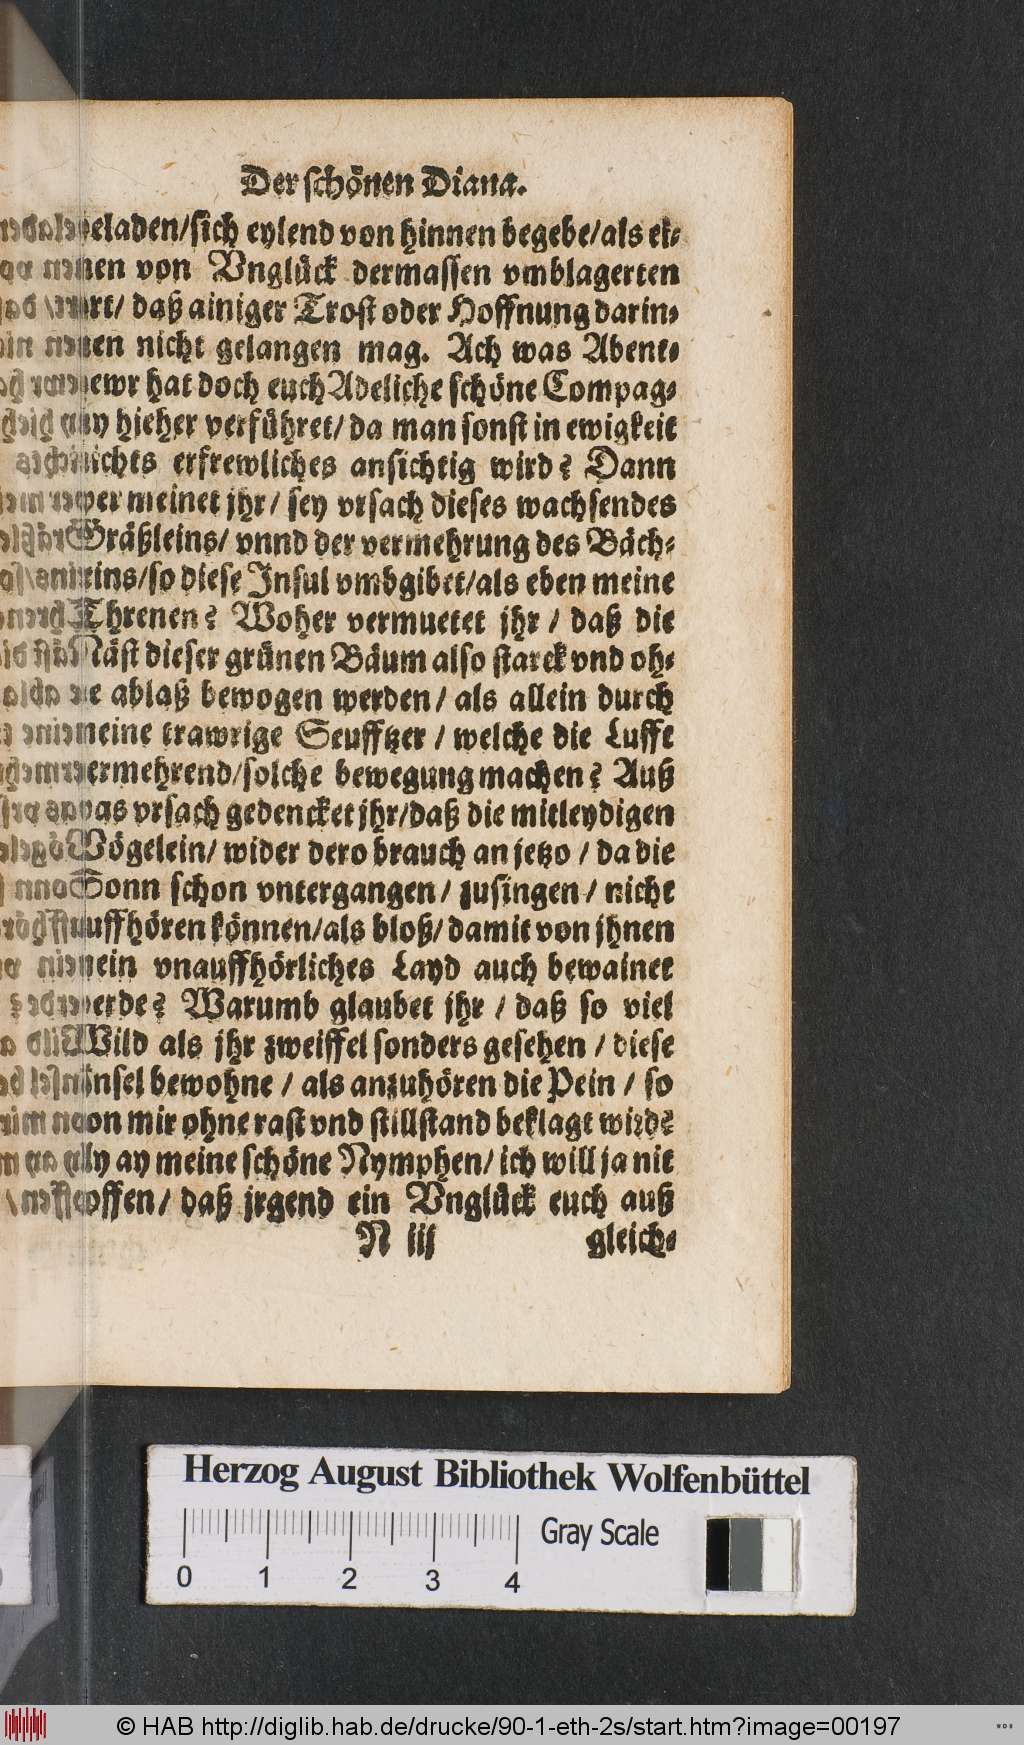 Der schönen Diana.
geladen/sich eylend von hinnen begebe/als ei-
nen von Vnglück dermassen vmblagerten
ort/ daß ainiger Trost oder Hoffnung darin-
nen nicht gelangen mag. Ach was Abent-
ewr hat doch euch Adeliche schöne Compag-
ny hieher verführet/ da man sonst in ewigkeit
nichts erfrewliches ansichtig wird? Dann
wer meinet jhr/ sey vrsach dieses wachsendes
Gräßleins/ vnnd der vermehrung des Bäch-
leins/so diese Insul vmbgibet/als eben meine
Threnen? Woher vermuetet jhr / daß die
Näst dieser grünen Bäum also starck vnd oh-
ne ablaß bewogen werden/ als allein durch
meine trawrige Seufftzer / welche die Lufft
vermehrend/solche bewegung machen? Auß
was vrsach gedencket jhr/daß die mitleydigen
Vögelein/ wider dero brauch an jetzo / da die
Sonn schon vntergangen/ zusingen/ nicht
auffhören können/als bloß/ damit von jhnen
mein vnauffhörliches Layd auch bewainet
werde? Warumb glaubet jhr / daß so viel
Wild als jhr zweiffel sonders gesehen / diese
Insel bewohne / als anzuhören die Pein / so
von mir ohne rast vnd stillstand beklagt wird?
Ay ay meine schöne Nymphen/ ich will ja nit
hoffen/ daß jrgend ein Vnglück euch auß
N iij gleich-
Herzog August Bibliothek Wolfenbüttel
Gray Scale
0 1 2 3 4
© HAB http://diglib.hab.de/drucke/90-1-eth-2s/start.htm?image=00197